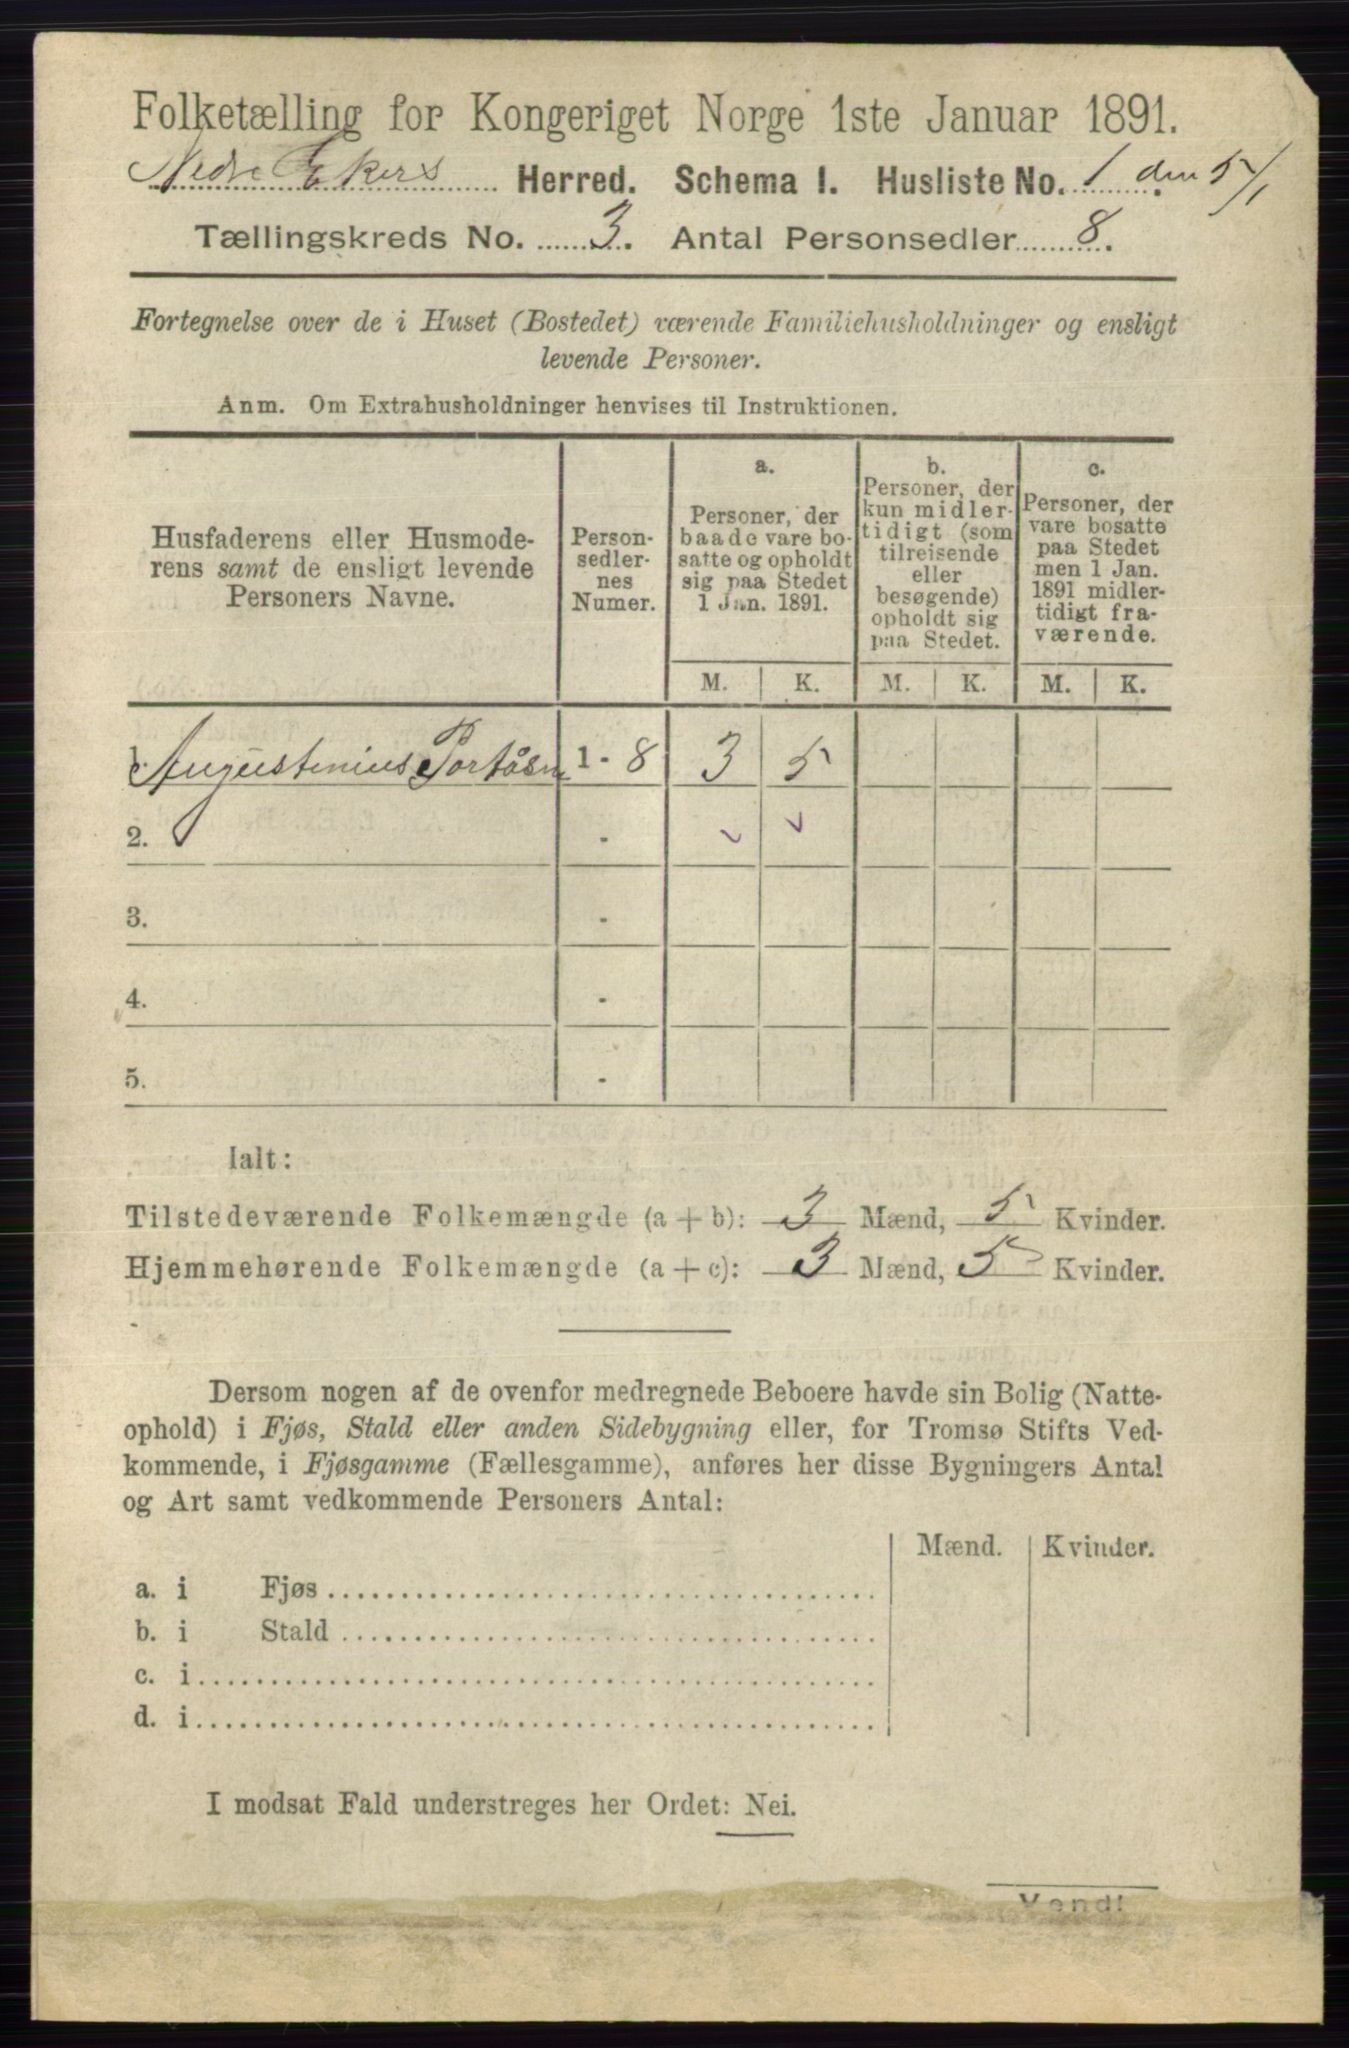 Folketælling for Kongeriget Norge 1ste Januar 1891.
Nedre Ekers Herred. Schema I. Husliste No. 1 den 5/1
Tællingskreds No. 3. Antal Personsedler 8.
Fortegnelse over de i Huset (Bostedet) værende Familiehusholdninger og ensligt
levende Personer.
Anm. Om Extrahusholdninger henvises til Instruktionen.
Husfaderens eller Husmode-
rens samt de ensligt levende
Personers Navne.
Person-
sedler-
nes
Numer.
a.
Personer, der
baade vare bo-
satte og opholdt
sig paa Stedet
1 Jan. 1891.
b.
Personer, der
kun midler-
tidigt (som
tilreisende
eller
besøgende)
opholdt sig
paa Stedet.
c.
Personer, der
vare bosatte
paa Stedet
men 1 Jan.
1891 midler-
tidigt fra-
værende.
M. K. M. K. M. K.
1. Augustinius 1 - 8 3 5
2. -
3. -
4. -
5. -
Ialt:
Tilstedeværende Folkemængde (a + b): 3 Mænd, 5 Kvinder.
Hjemmehørende Folkemængde (a + c): 3 Mænd, 5 Kvinder.
Dersom nogen af de ovenfor medregnede Beboere havde sin Bolig (Natte-
ophold) i Fjøs, Stald eller anden Sidebygning eller, for Tromsø Stifts Ved-
kommende, i Fjøsgamme (Fællesgamme), anføres her disse Bygningers Antal
og Art samt vedkommende Personers Antal:
Mænd. Kvinder.
a. i Fjøs
b. i Stald
c. i
d. i
I modsat Fald understreges her Ordet: Nei.
Vend!